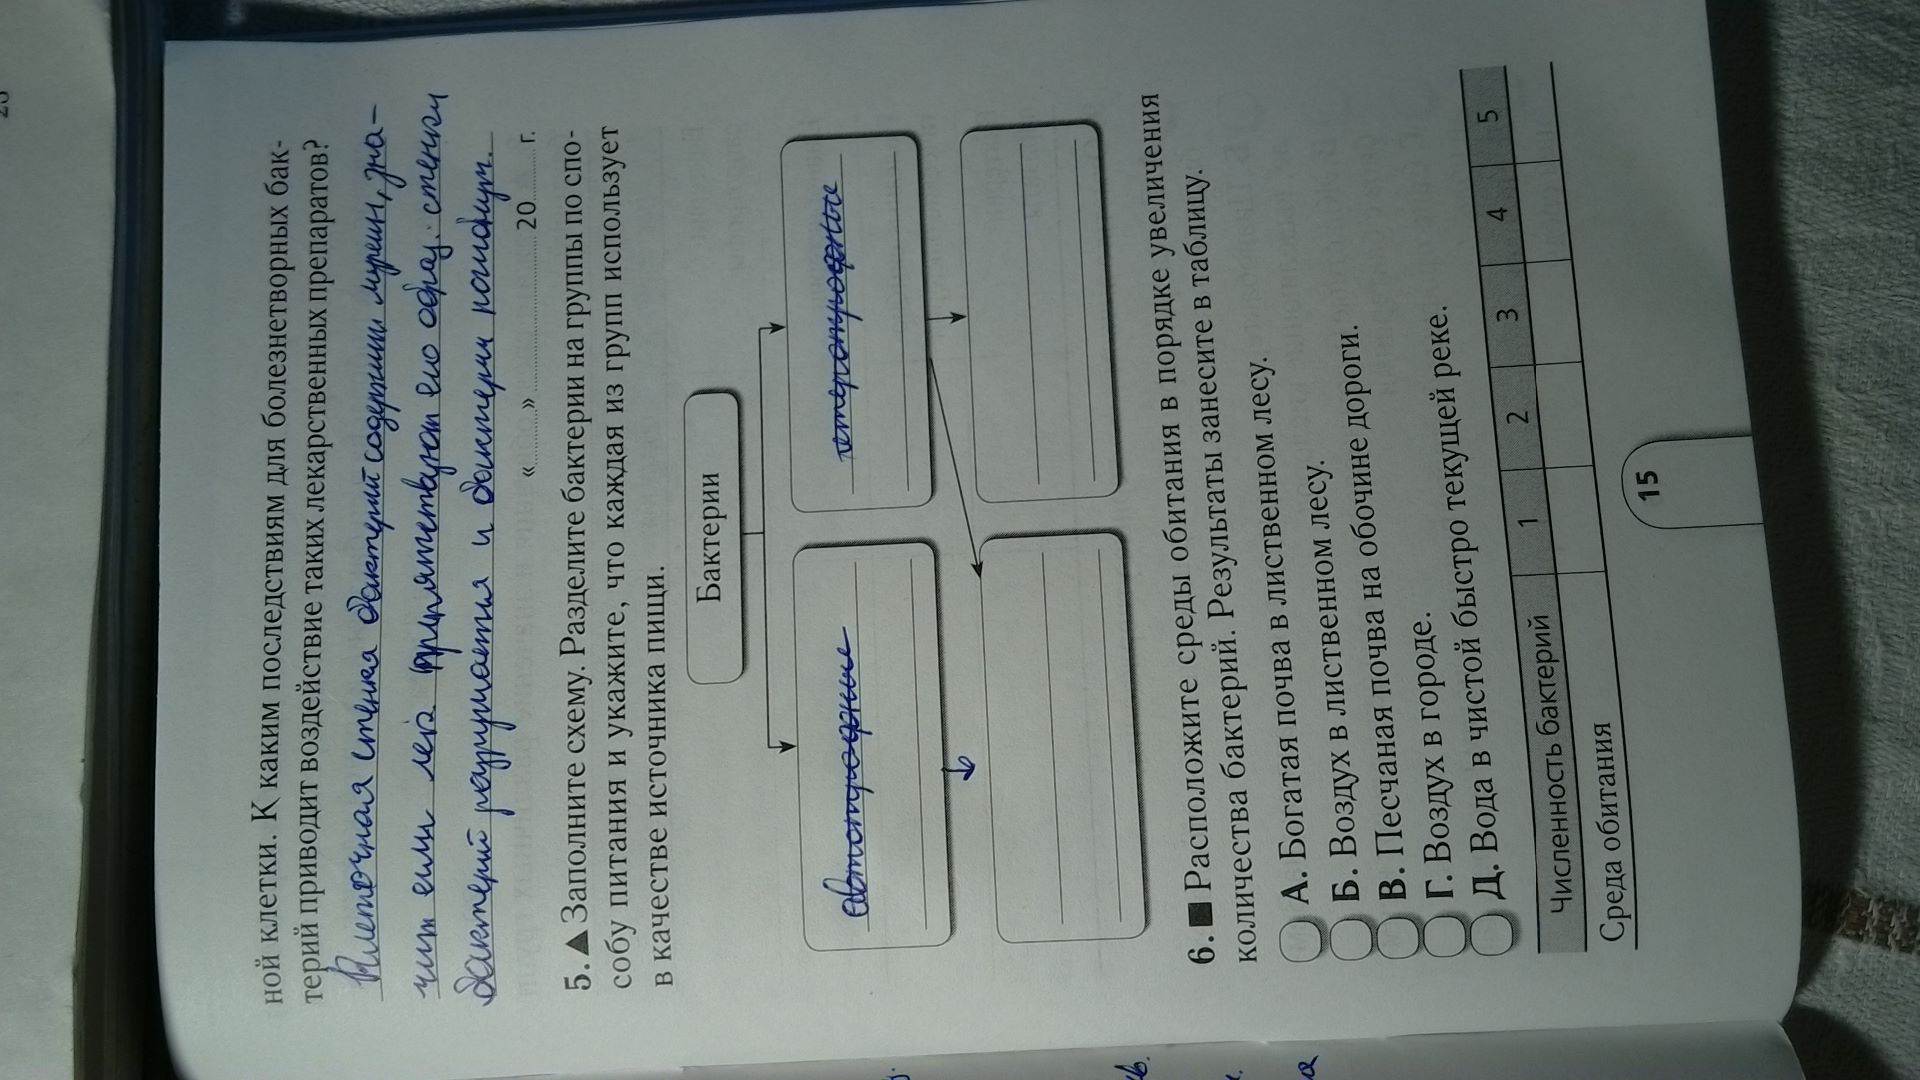 ной клетки. К каким последствиям для болезнетворных бак-
терий приводит воздействие таких лекарственных препаратов?
Клеточная стенка бактерий содержит муреин, зна-
чит если лек препятствуют его образ. стенки
бактерий разрушатся и бактерии погибнут.
«............» ............................ 20........ г.
5. ▲ Заполните схему. Разделите бактерии на группы по спо-
собу питания и укажите, что каждая из групп использует
в качестве источника пищи.
Бактерии
автотрофные
гетеротрофные
6. ■ Расположите среды обитания в порядке увеличения
количества бактерий. Результаты занесите в таблицу.
А. Богатая почва в лиственном лесу.
Б. Воздух в лиственном лесу.
В. Песчаная почва на обочине дороги.
Г. Воздух в городе.
Д. Вода в чистой быстро текущей реке.
Численность бактерий 1 2 3 4 5
Среда обитания
15